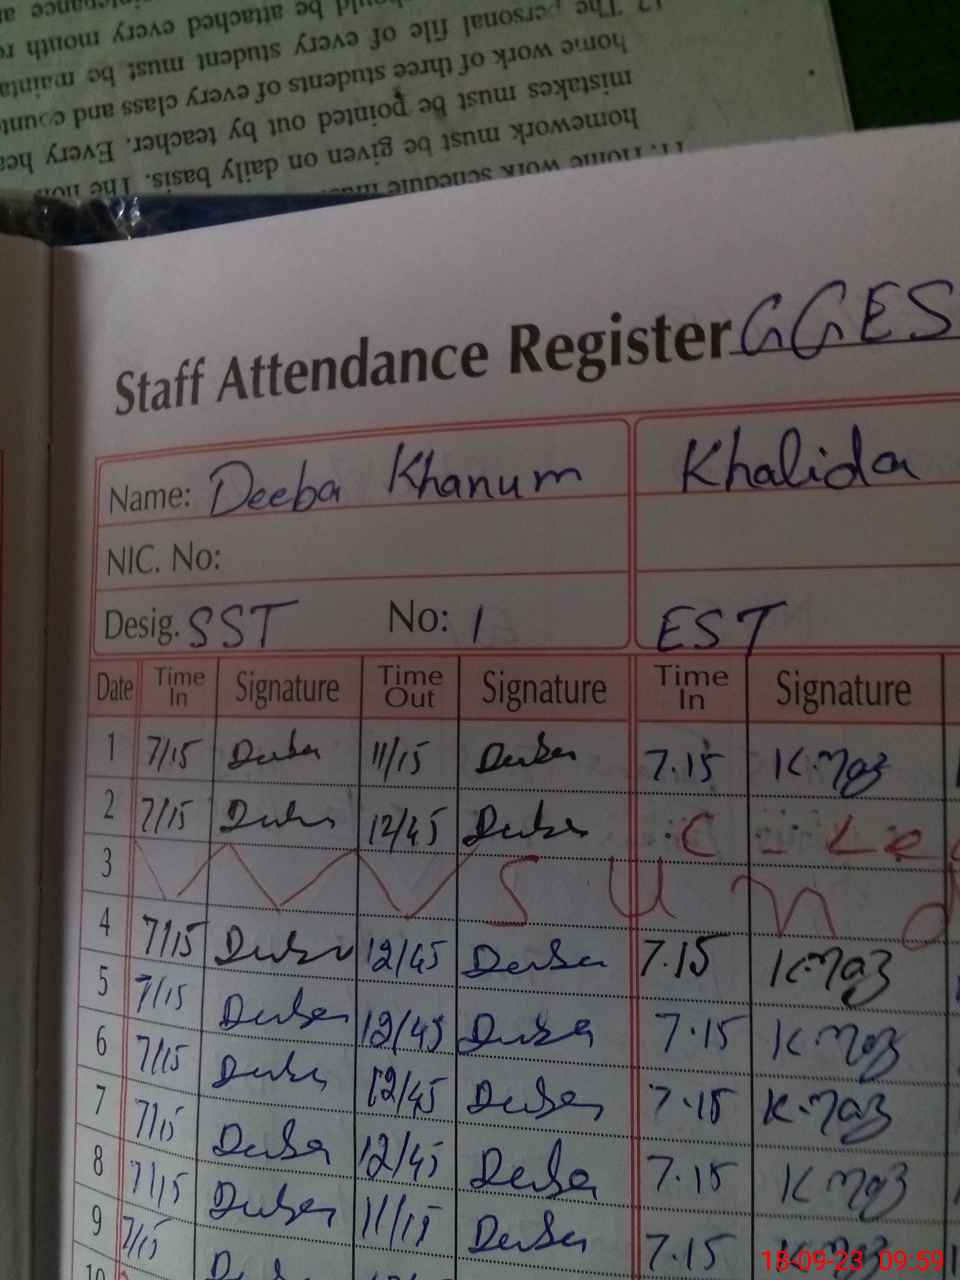 11. Home work schedule
homework must be given on daily basis. The
mistakes must be pointed out by teacher. Every
home work of three students of every class and
12. The personal file of every student must be
be attached every month
Staff Attendance Register GGES
Name: Deeba Khanum Khalida
NIC. No:
Desig. SST No: 1 EST
Date Time In Signature Time Out Signature Time In Signature
1 7/15 Deeba 11/15 Deeba 7.15 K.Naz
2 7/15 Deeba 12/45 Deeba C - Le
3 Sund
4 7/15 Deeba 12/45 Deeba 7.15 K.Naz
5 7/15 Deeba 12/45 Deeba 7.15 K.Naz
6 7/15 Deeba 12/45 Deeba 7.15 K.Naz
7 7/15 Deeba 12/45 Deeba 7.15 K.Naz
8 7/15 Deeba 11/15 Deeba 7.15 K.Naz
9 7/15
10
18-09-23 09:59